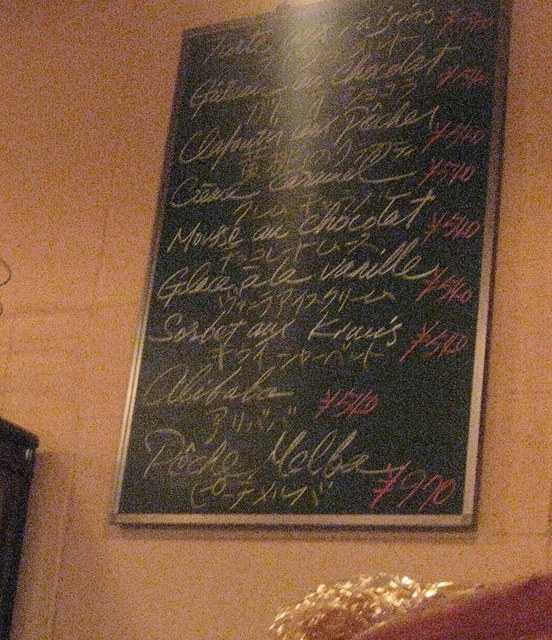 Tarte aux raisins
Gâteau au chocolat
Clafoutis aux Pêches ¥540
Crème Caramel ¥540
Mousse au chocolat ¥540
チョコレートムース
Glace à la vanille ¥540
ヴァニラアイスクリーム
Sorbet aux Kiwis ¥540
キウイシャーベット
Alibaba ¥540
アリババ
Pêche Melba ¥970
ピーチメルバ